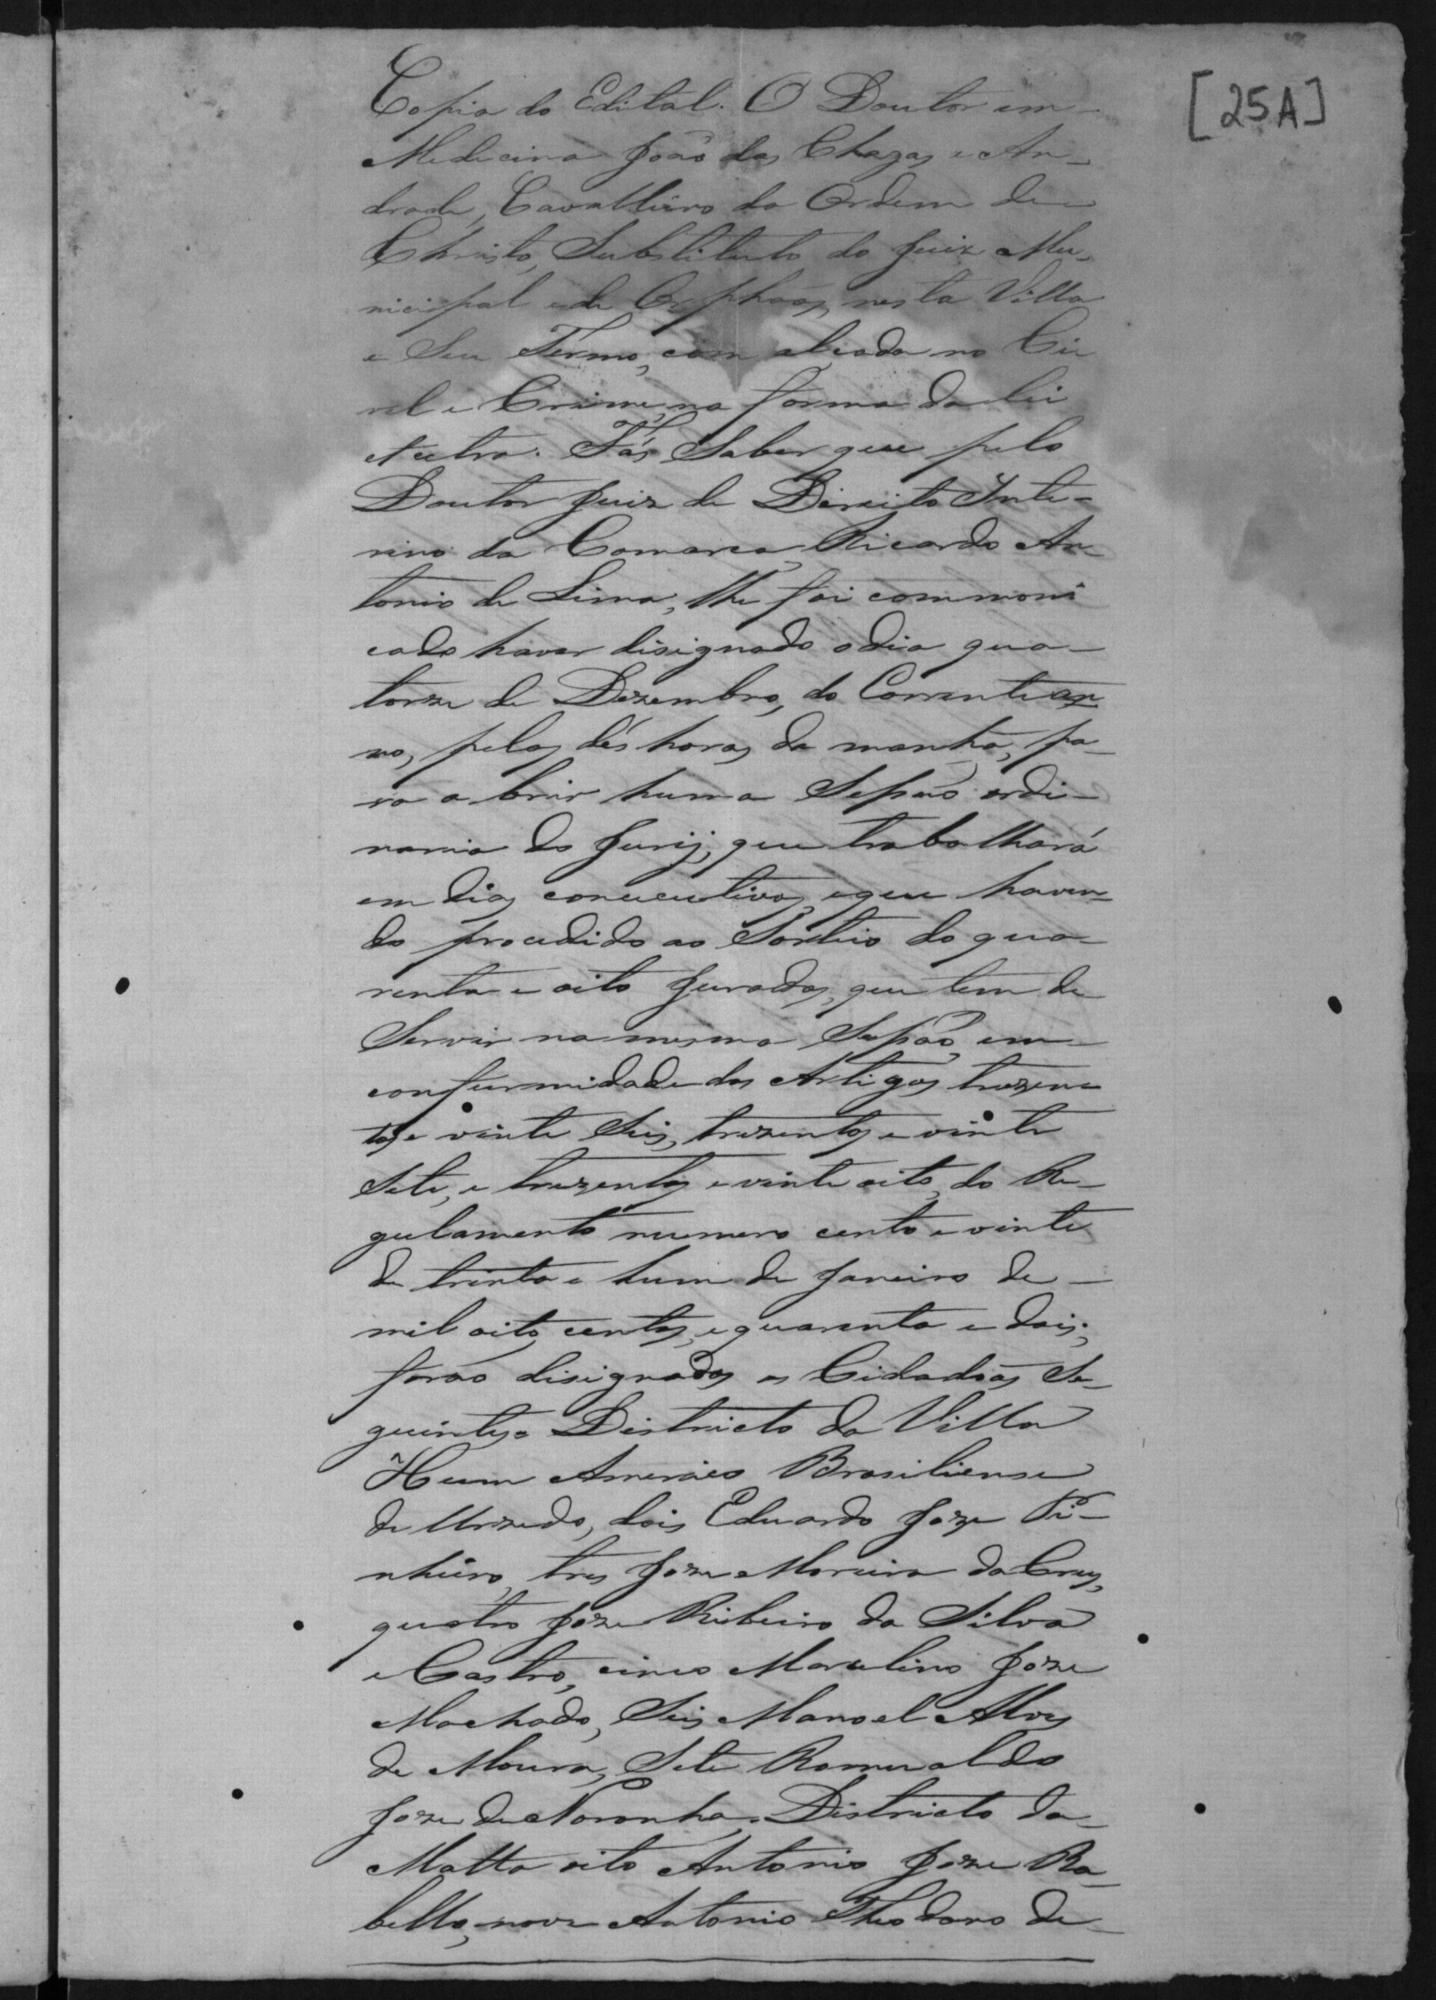 [25A]
Copia do Edital. O Doutor em
Medicina João das Chagas e An-
drade, Cavalleiro da Ordem de
Christo, Substituto do Juiz Mu-
nicipal e de Orphaõs, nesta Villa
e Seu Termo, com alçada no Ci-
vel e Crime, na forma da lei
etcetra. Fás Saber que pelo
Doutor Juiz de Direito Inte-
rino da Comarca, Ricardo An-
tonio de Lima, lhe foi commoni
cado haver disignado o dia qua-
torze de Dezembro, do Corrente an-
no, pelas dés horas da manhã, pa-
ra abrir huma Sessaõ ordi-
naria do Jurij, que trabalhará
em dias concecutivos, e que haven-
do procedido ao Sorteio do qua-
renta e oito Jurados, que tem de
Servir na mesma Sessaõ, em
confurmidade dos Artigos trezen-
tos e vinte Seis, trezentos e vinte
Sete, e trezentos e vinte oito, do Re-
gulamento numero cento e vinte
de trinta e hum de Janeiro de
mil oito centos, e quarenta e dois;
foraõ disignados os Cidadaõs Se-
guintes = Districto da Villa
Hum Americo Brasiliense
de Urzedo, dois Eduardo Joze Pi-
nheiro, tres Joze Moreira da Cruz,
quatro Joze Ribeiro da Silva
e Castro, cinco Marcelino Joze
Machado, Seis Manoel Alves
de Moura, Sete Romualdo
Joze de Noronha. Districto da
Matta oito Antonio Joze Ra-
bello, nove Antonio Theodoro de